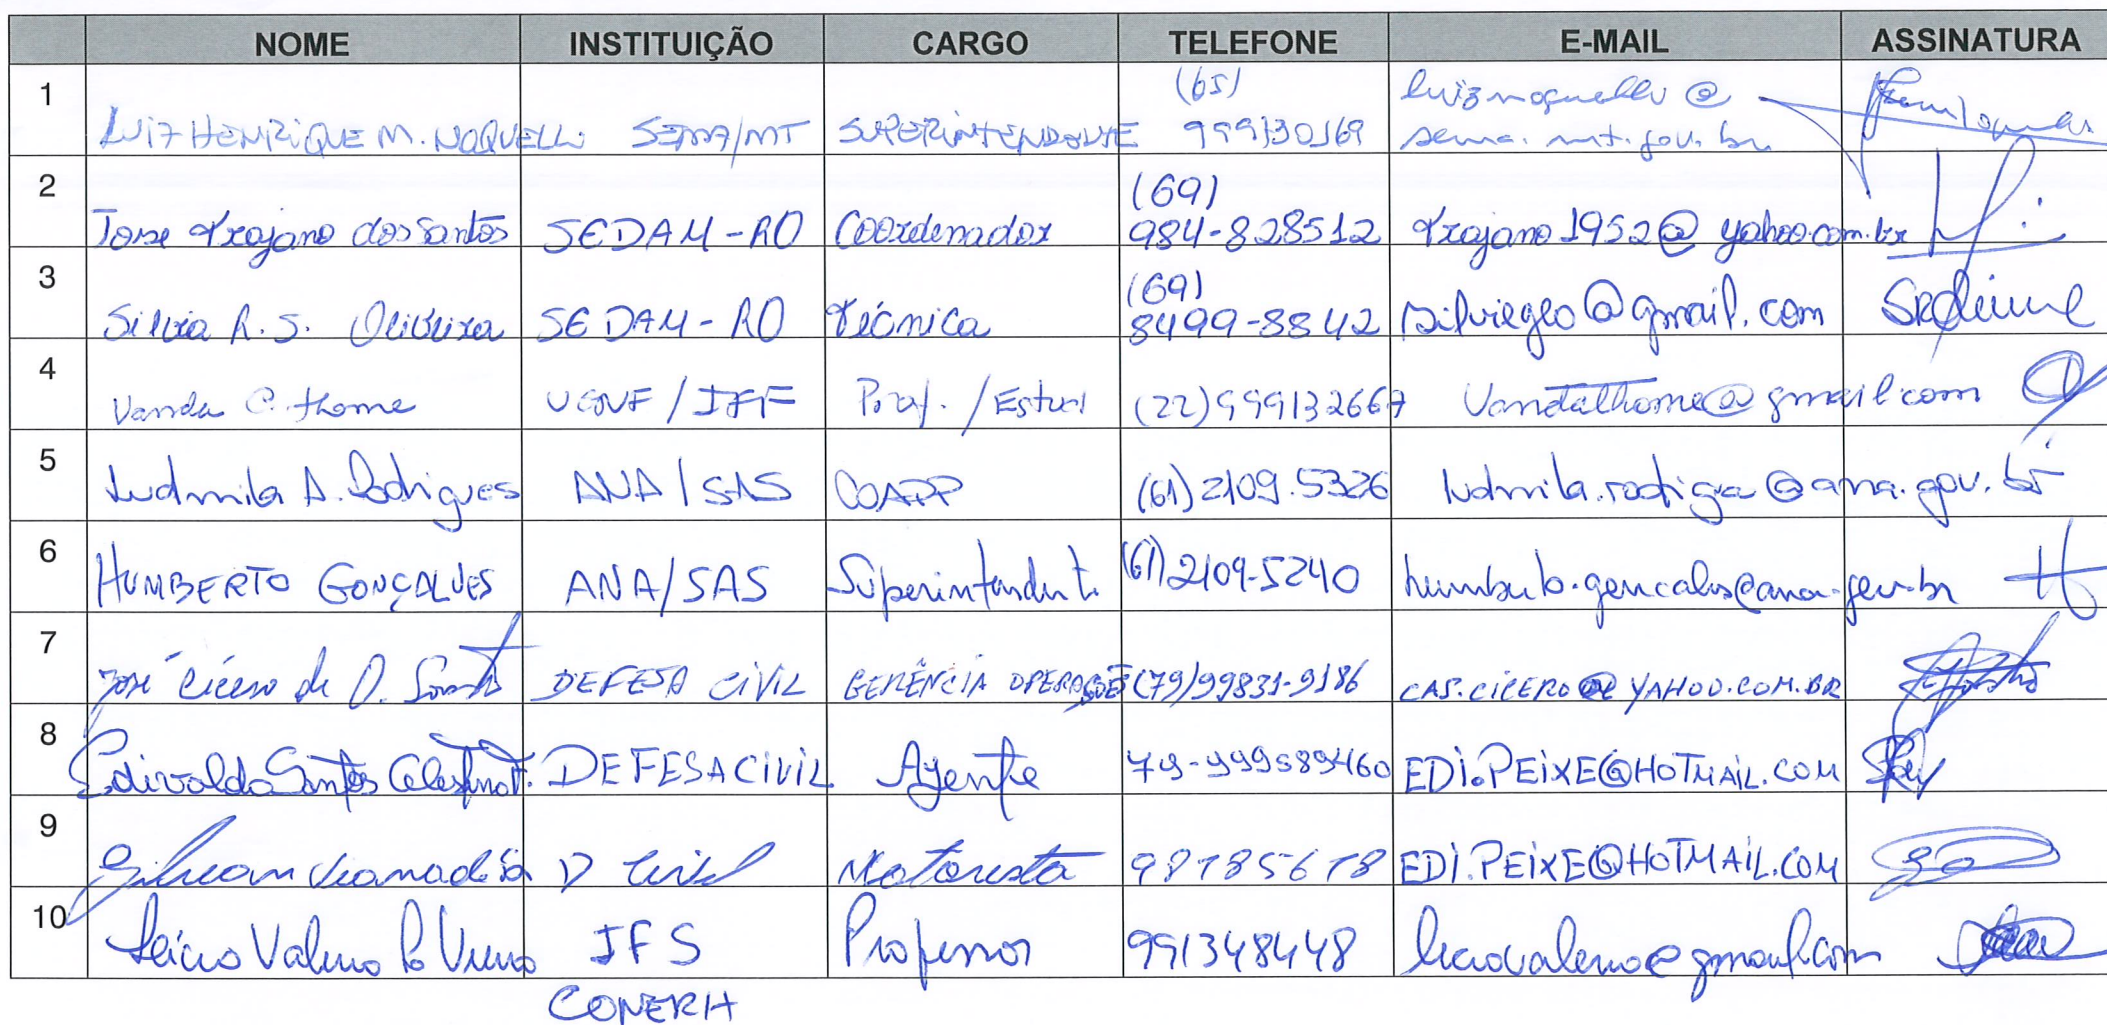 NOME INSTITUIÇÃO CARGO TELEFONE E-MAIL ASSINATURA
1 LUIZ HENRIQUE M. NOQUELLI SEMA/MT SUPERINTENDENTE (65) 999130169 luiznoquelli@
sema.mt.gov.br
2 Jose Trajano dos Santos SEDAM-RO Coordenador (69) 984-828512 trajano1952@yahoo.com.br
3 Silvia R. S. Oliveira SEDAM-RO Técnica (69) 8499-8842 silviageo@gmail.com
4 Vanda C. thome UENF / IFF Prof. / (22) 999132667 @gmail.com
5 Ludmila A. Rodrigues ANA/SAS COAPP (61) 2109.5326 @ana.gov.br
6 HUMBERTO GONÇALVES ANA/SAS Superintendente (61) 2109-5240 humberto.goncalves@ana.gov.br
7 José Cícero de O. Santos DEFESA CIVIL GERÊNCIA (79) 99831-9186 CAS.CICERO@YAHOO.COM.BR
8 Edivaldo Santos DEFESA CIVIL Agente 79-999589460 EDI.PEIXE@HOTMAIL.COM
9 D Civil Motorista EDI.PEIXE@HOTMAIL.COM
10 IFS Professor 991348448
CONERH